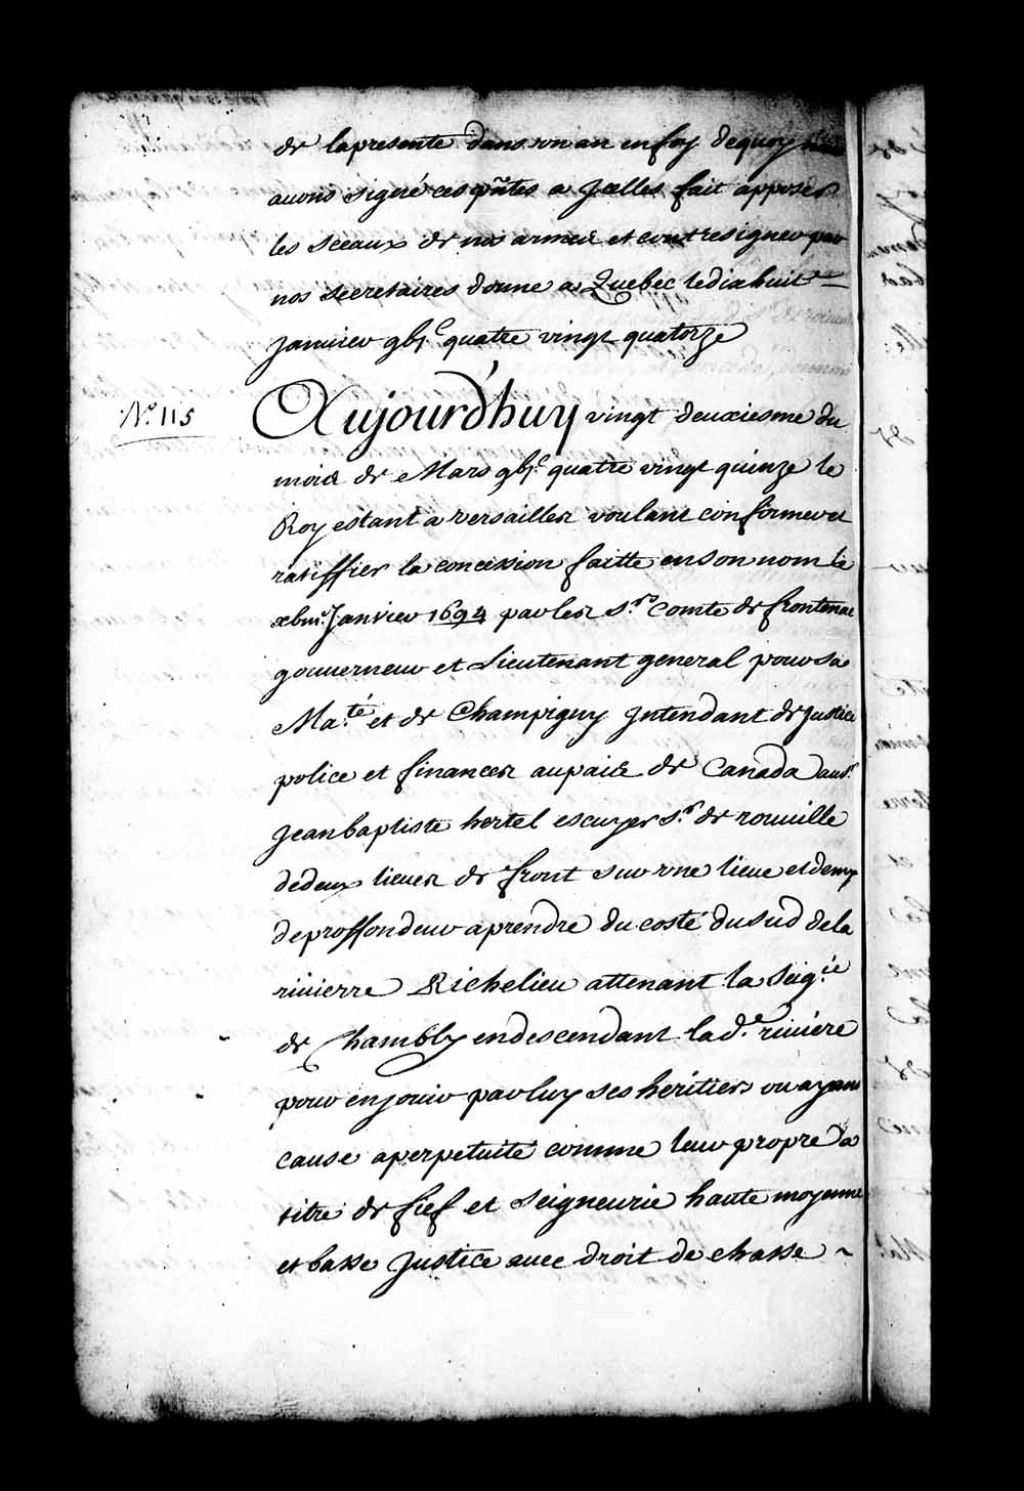 de lapresente dans un an en foy dequoy
auons signé ces pñtes a Jcelles fait apposer
les sceaux de nos armes et contresigner par
nos secretaires donne a Quebec ledixhuit
Januier gbj.c quatre vingt quatorze
N.o 115
Aujourd'huy vingt deuxiesme du
mois de Mars gbj.c quatre vingt quinze le
Roy estant a versailles voulant confirmer et
ratiffier la concession faitte en son nom le
xbiii.e Janvier 1694 par les s.rs Comte de frontenac
gouuerneur et Lieutenant general pour sa
Ma.té et de Champigny Jntendant de Justice
police et finances au pais de Canada au s.r
Jean baptiste hertel escuyer s.r de rouuille
de deux lieues de front sur une lieue et demy
de proffondeur a prendre du costé du sud de la
riuierre Richelieu attenant la seig.ie
de Chambly en descendant lad.e riuiére
pour en jouir par luy ses heritiers ou ayans
cause a perpetuité comme leur propre a
titre de fief et seigneurie haute moyenne
et basse Justice auec droit de chasse ~